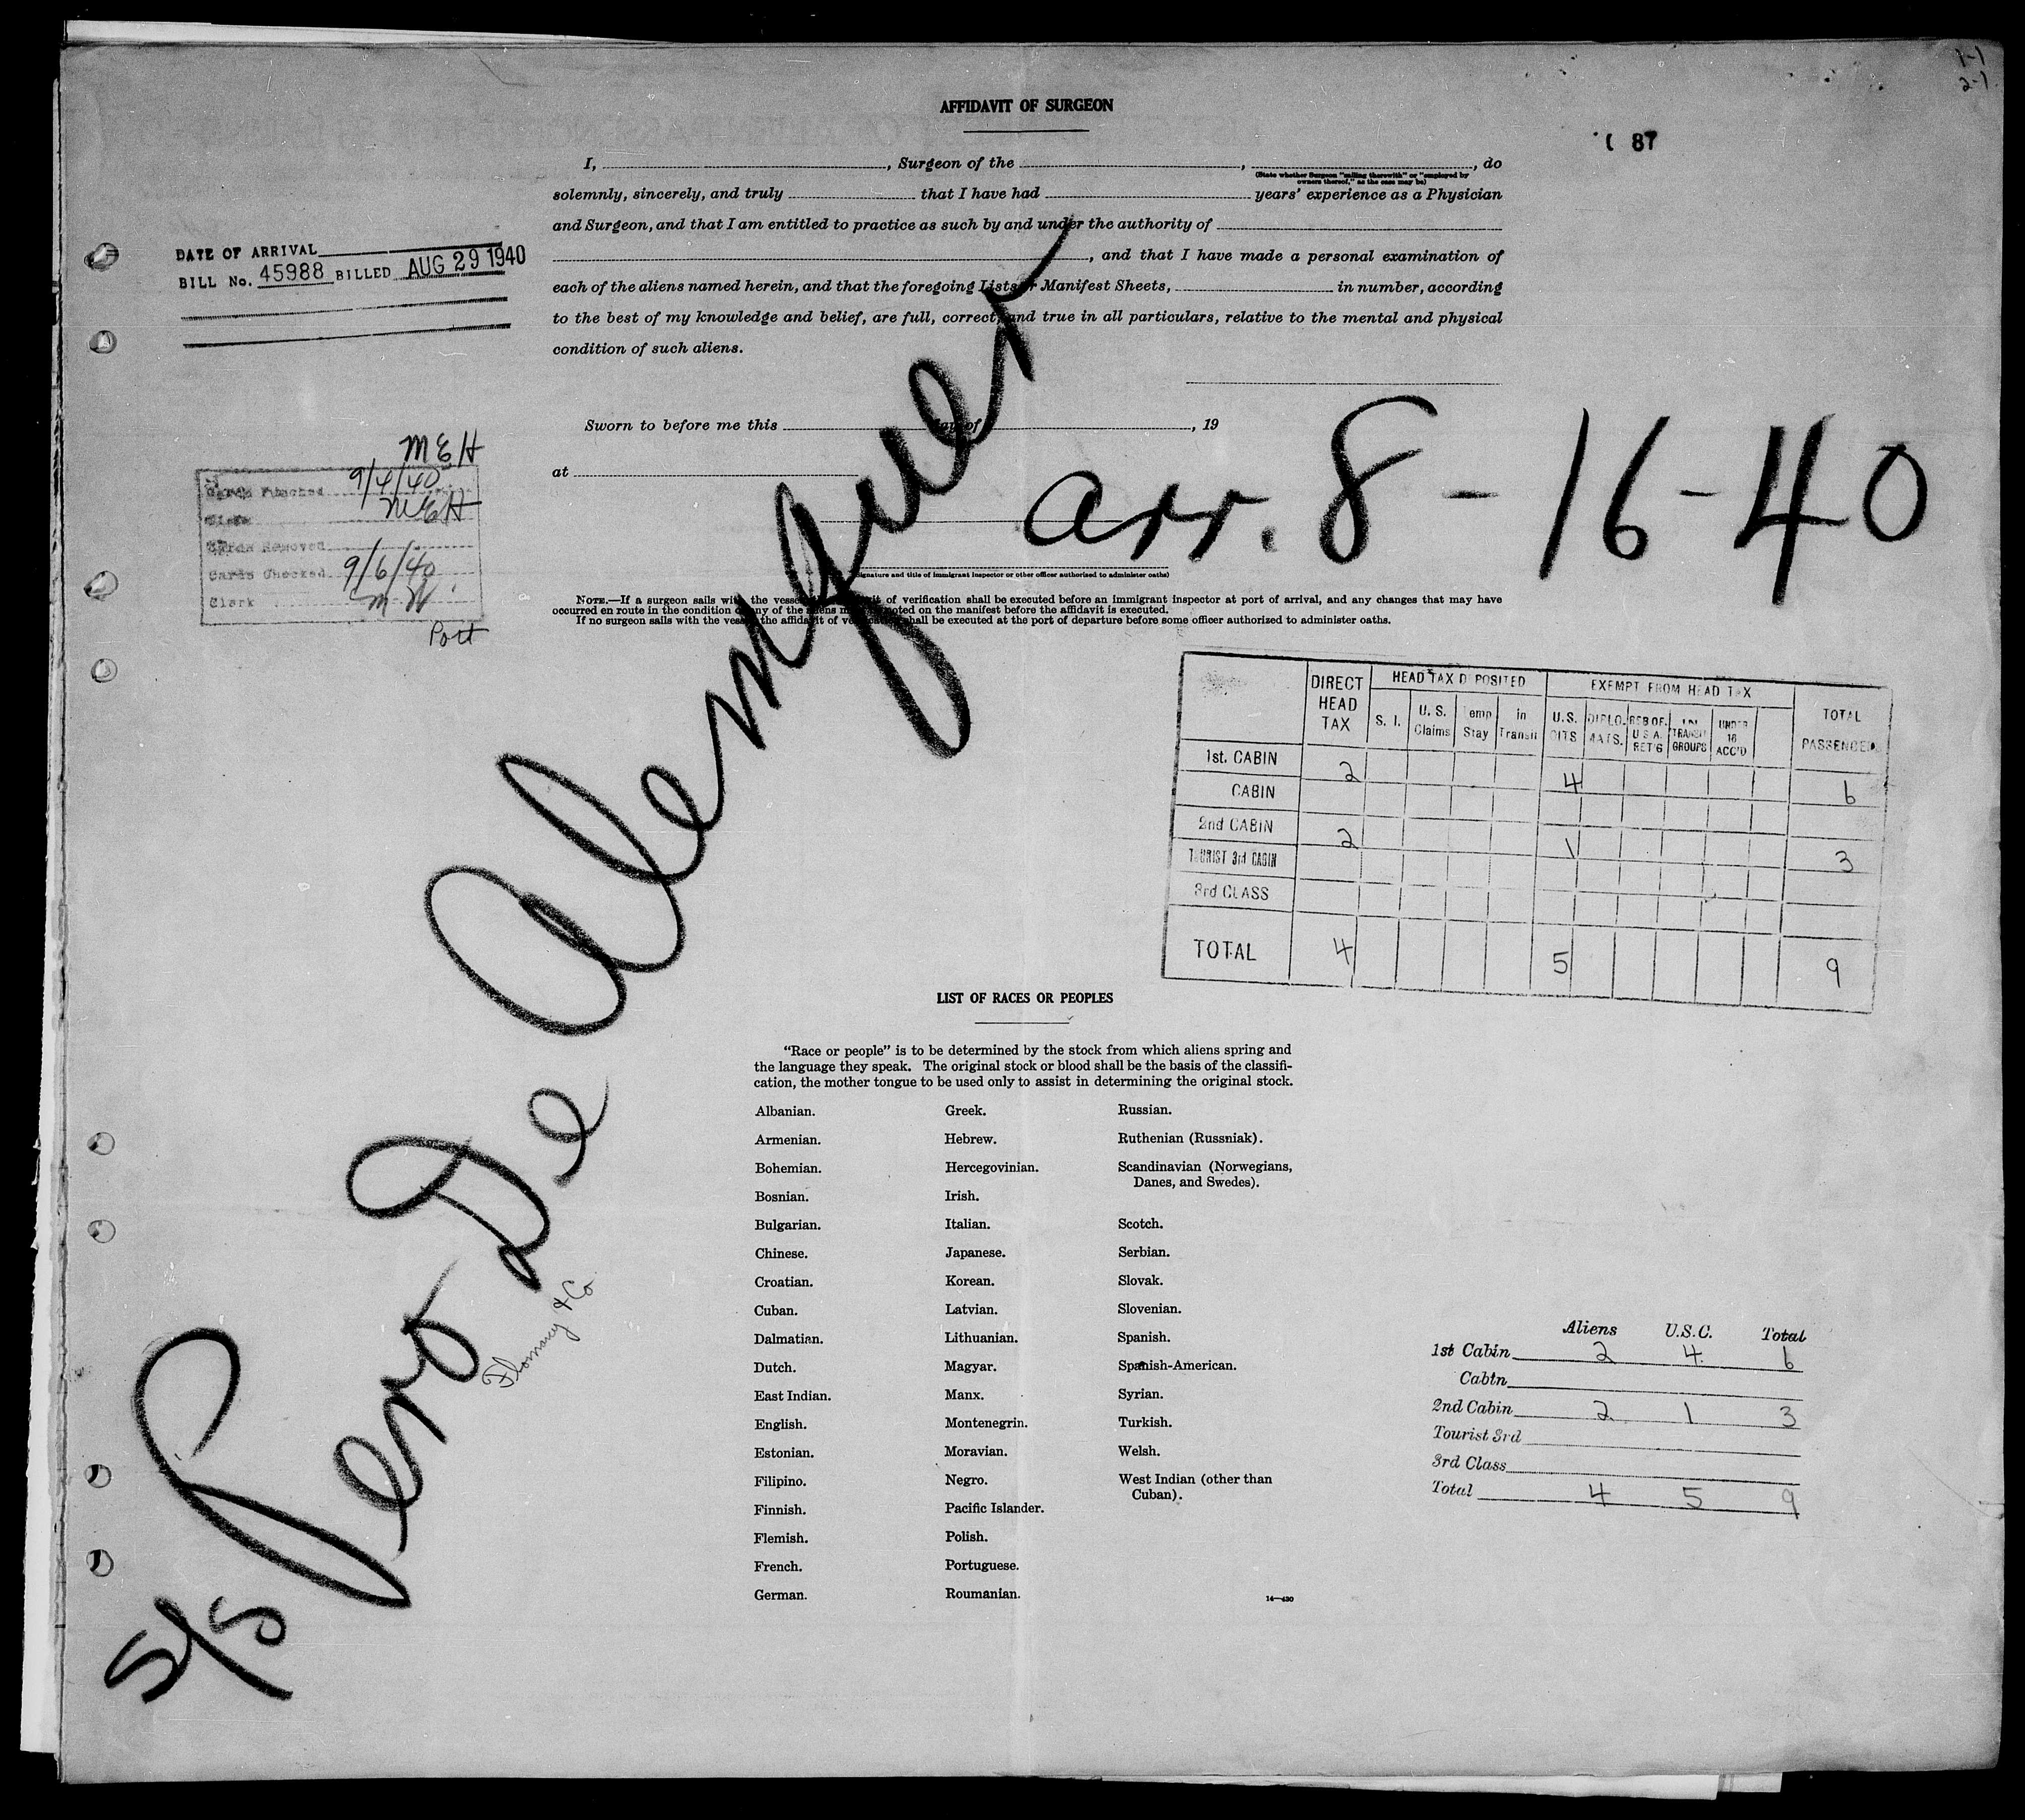 1-1
2-1
AFFIDAVIT OF SURGEON
87
I, , Surgeon of the , , do
(State whether Surgeon "sailing therewith" or "employed by
owners thereof," as the case may be)
solemnly, sincerely, and truly that I have had years' experience as a Physician
and Surgeon, and that I am entitled to practice as such by and under the authority of
, and that I have made a personal examination of
each of the aliens named herein, and that the foregoing Lists or Manifest Sheets, in number, according
to the best of my knowledge and belief, are full, correct, and true in all particulars, relative to the mental and physical
condition of such aliens.
DATE OF ARRIVAL
BILL No. 45988 BILLED AUG 29 1940
Sworn to before me this day of , 19
at
arr. 8-16-40
(Signature and title of immigrant inspector or other officer authorized to administer oaths)
MEH
Cards Punched 9/4/40
Clerk MEH
Cards Removed
Cards Checked 9/6/40
Clerk M W
Port
NOTE.—If a surgeon sails with the vessel of verification shall be executed before an immigrant inspector at port of arrival, and any changes that may have
occurred en route in the condition of any of the aliens noted on the manifest before the affidavit is executed.
If no surgeon sails with the vessel the affidavit of verification shall be executed at the port of departure before some officer authorized to administer oaths.
S/S Pero De Alemquer
& Co
DIRECT HEAD TAX HEAD TAX DEPOSITED EXEMPT FROM HEAD TAX TOTAL PASSENGER
S. I. U. S. Claims Temp Stay in Transit U.S. CITS DIPLO-MATS. RES OF U S A. RET'G IN TRANSIT GROUPS UNDER 16 ACC'D
1st. CABIN 2 4 6
CABIN
2nd CABIN 2 1 3
TOURIST 3rd CABIN
3rd CLASS
TOTAL 4 5 9
LIST OF RACES OR PEOPLES
"Race or people" is to be determined by the stock from which aliens spring and
the language they speak. The original stock or blood shall be the basis of the classifi-
cation, the mother tongue to be used only to assist in determining the original stock.
Albanian.
Armenian.
Bohemian.
Bosnian.
Bulgarian.
Chinese.
Croatian.
Cuban.
Dalmatian.
Dutch.
East Indian.
English.
Estonian.
Filipino.
Finnish.
Flemish.
French.
German.
Greek.
Hebrew.
Hercegovinian.
Irish.
Italian.
Japanese.
Korean.
Latvian.
Lithuanian.
Magyar.
Manx.
Montenegrin.
Moravian.
Negro.
Pacific Islander.
Polish.
Portuguese.
Roumanian.
Russian.
Ruthenian (Russniak).
Scandinavian (Norwegians,
Danes, and Swedes).
Scotch.
Serbian.
Slovak.
Slovenian.
Spanish.
Spanish-American.
Syrian.
Turkish.
Welsh.
West Indian (other than
Cuban).
14—430
Aliens U.S.C. Total
1st Cabin 2 4 6
Cabin
2nd Cabin 2 1 3
Tourist 3rd
3rd Class
Total 4 5 9